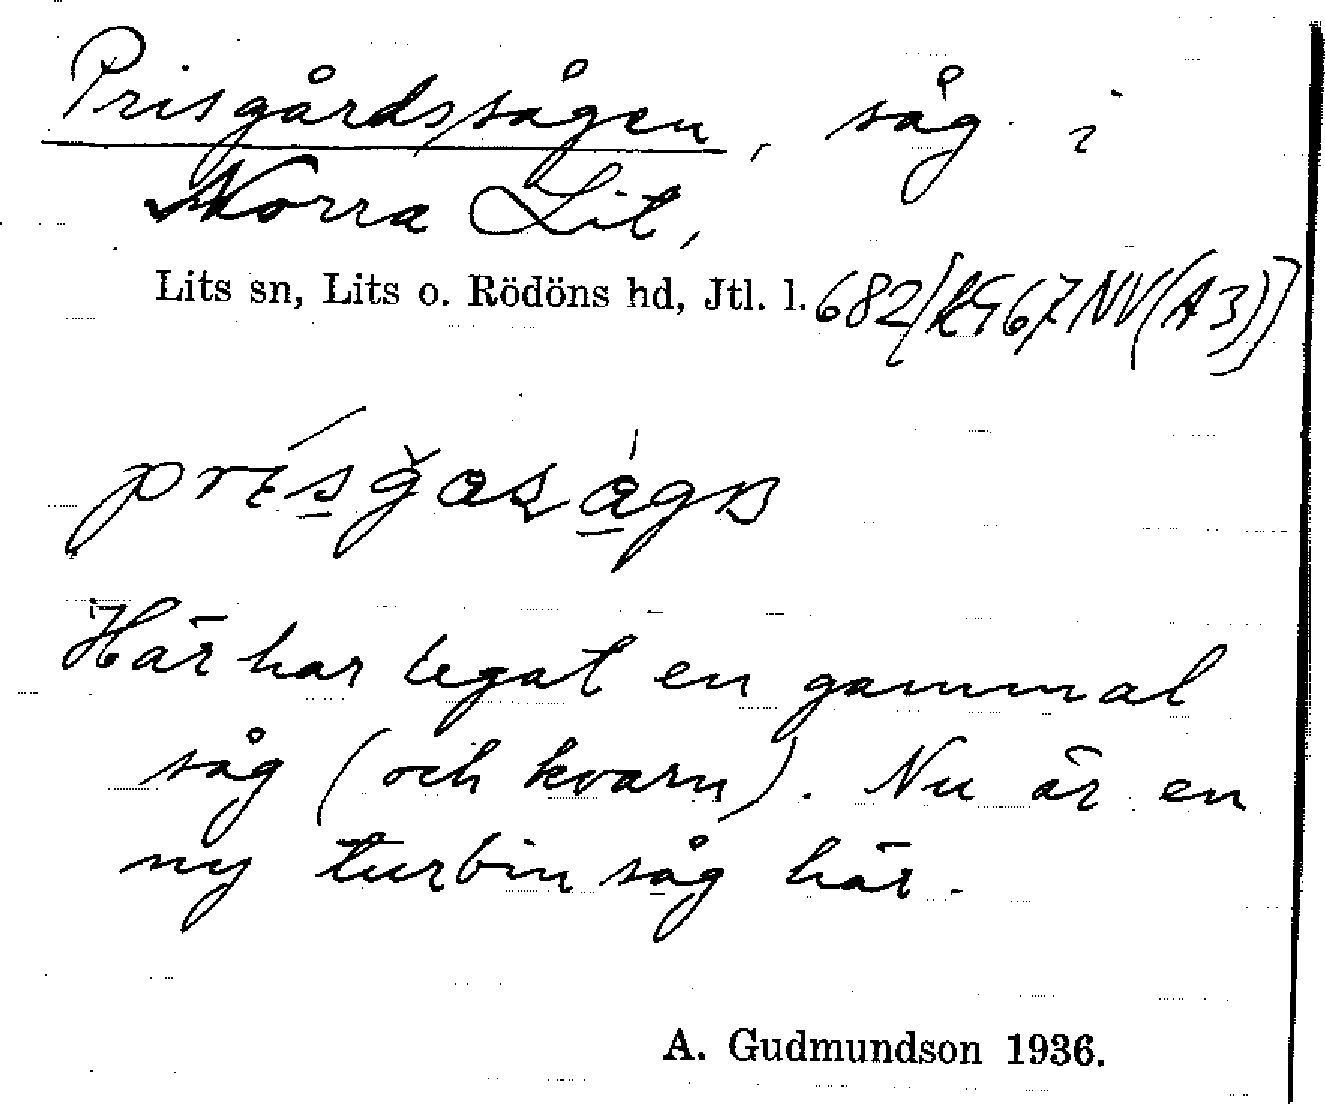 Prisgårdssågen, såg i
Norra Lit,
Lits sn, Lits o. Rödöns hd, Jtl. l. 682
Här har legat en gammal
såg (och kvarn). Nu är en
ny turbinsåg här.
A. Gudmundson 1936.